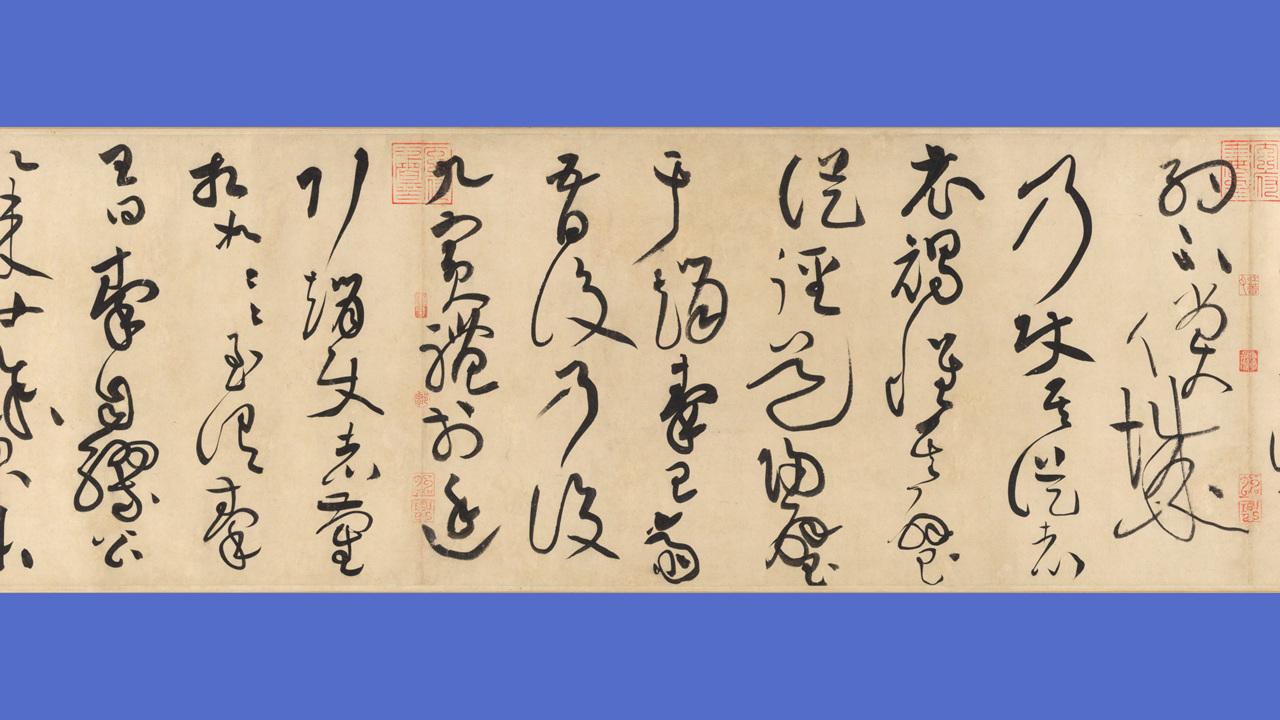 約不償城
乃使其從者
衣褐懷其璧
從徑道歸璧
于趙秦王齋
五日後乃設
九賓禮於廷
引趙使者藺
相如〻〻至謂秦
王曰秦自繆公